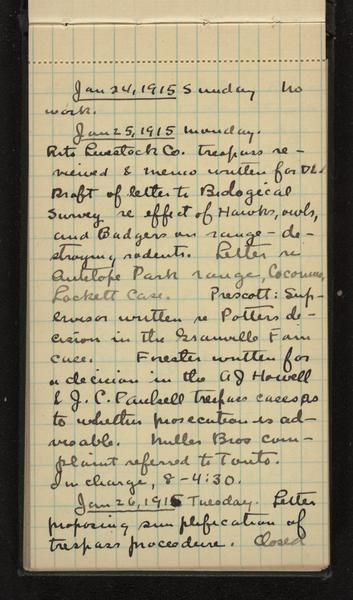 Jan 24, 1915 Sunday No
work.
Jan 25, 1915 Monday.
Rito Livestock Co. trespass re-
viewed & memo written for DL.
Draft of letter to Biological
Survey re effect of Hawks, owls,
and Badgers on range-de-
stroying rodents. Letter re
Antelope Park range, Coconino,
Lockett Case. Prescott: Sup-
ervisor written re Potters de-
cision in the Granville Fain
case. Forester written for
a decision in the AJ Howell
& J. C. Paulsell trespass cases as
to whether prosecution is ad-
visable. Muller Bros com-
plaint referred to Tonto.
In charge, 8-4:30.
Jan 26, 1915 Tuesday. Letter
proposing simplification of
trespass procedure. Closed